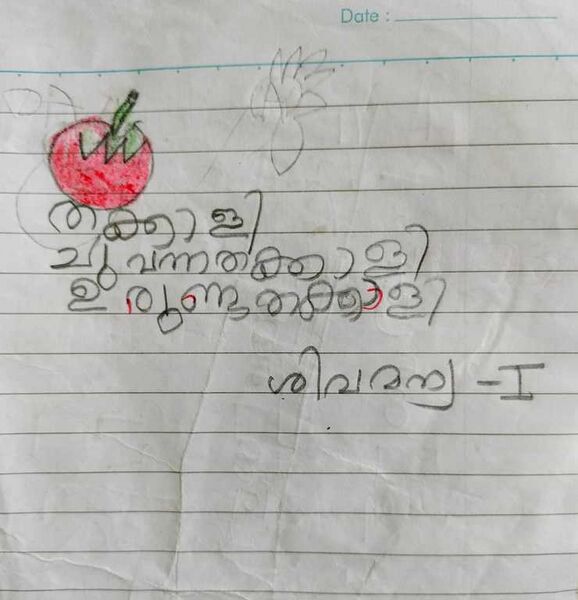 Date :
തക്കാളി
ചുവന്നതക്കാളി
ഉരുണ്ടതക്കാളി
ശിവരന്യ - I